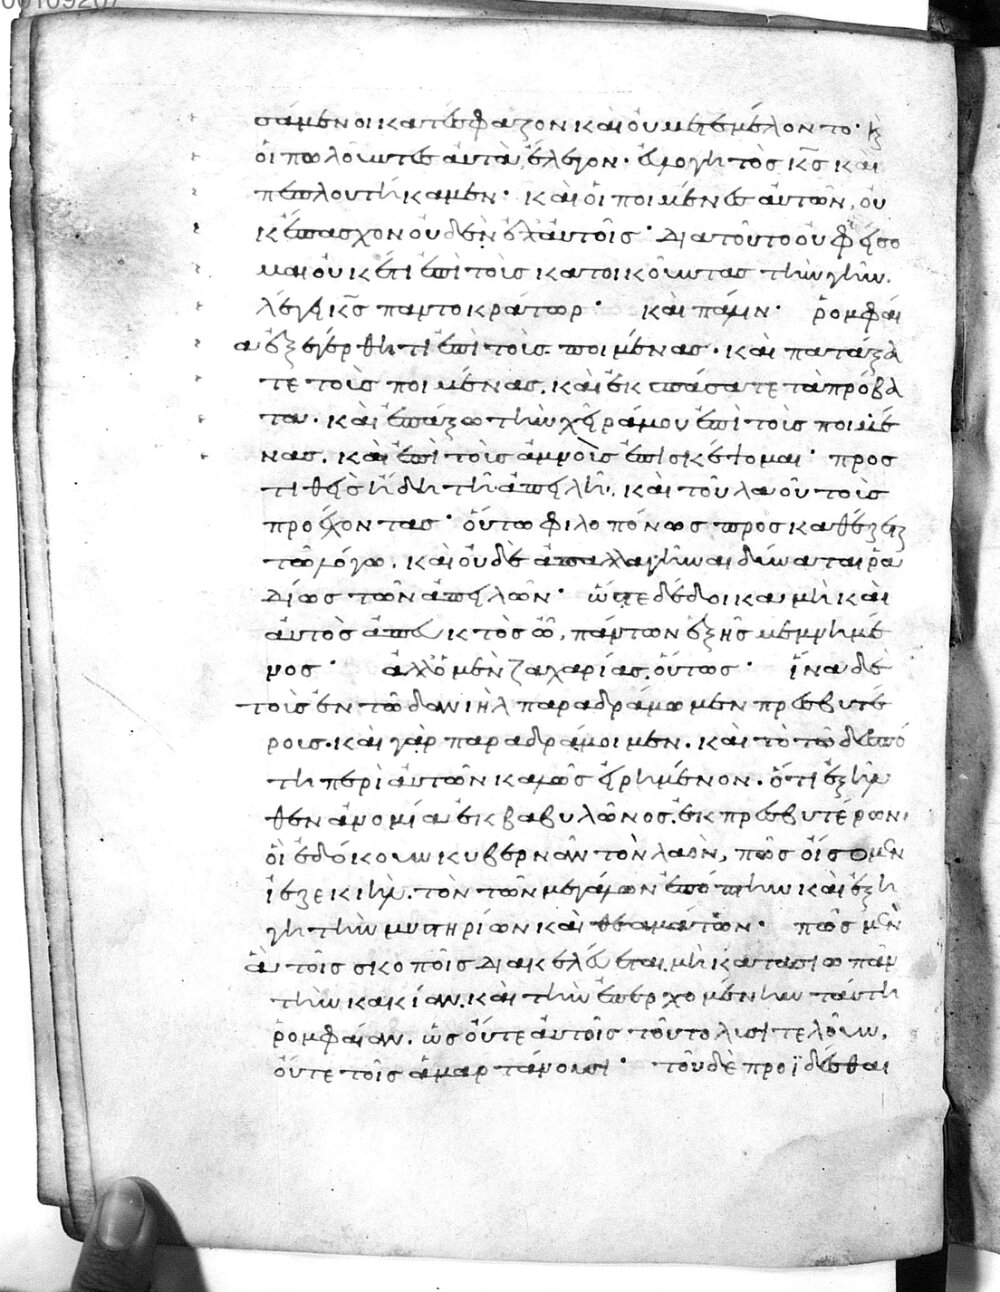 σάμενοι κατέσφαζον καὶ οὐ μετεμέλοντο· κ
οἱ πωλοῦντες αὐτὰ, ἔλεγον· εὐλογητὸς κς καὶ
πεπλουτήκαμεν· καὶ οἱ ποιμένες αὐτῶν, οὐ
κ ἔπασχον οὐδὲν ἐπ αὐτοῖς· Διατοῦτο οὐ φείσο
μαι οὐκέτι ἐπὶ τοὺς κατοικοῦντας τὴν γῆν.
λέγει κς παντοκράτωρ· καὶ πάλιν· ῥομφαί
α ἐξεγέρθητι ἐπὶ τοὺς ποιμένας· καὶ πατάξα
τε τοὺς ποιμένας, καὶ ἐκσπάσατε τὰ πρόβα
τα· καὶ ἐπάξω τὴν χεῖρά μου ἐπὶ τοὺς ποιμέ
νας. καὶ ἐπὶ τοὺς ἀμνοὺς ἐπισκέψομαι· προσ
τιθεὶς ἤδη τῇ ἀπειλῇ, καὶ τοῦ λαοῦ τοὺς
προέχοντας· οὕτω φιλοπόνως προσκαθέζεται
τῷ λόγῳ, καὶ οὐδὲ ἀπαλλαγῆναι δύναται ῥα
δίως τῶν ἀπειλῶν· ὥστε δέδοικα μὴ καὶ
αὐτὸς ἀπευκτὸς ὦ, πάντων ἑξῆς μεμνημέ
νος· ἀλλ ὁ μὲν ζαχαρίας, οὕτως· ἵνα δὲ
τοὺς ἐν τῷ δανιὴλ παραδράμωμεν πρεσβυτέ
ρους. καὶ γὰρ παραδράμοιμεν. καὶ τὸ τῷ δεσπό
τῃ περὶ αὐτῶν καλῶς εἰρημένον. ὅτι ἐξῆλ
θεν ἀνομία ἐκ βαβυλῶνος, ἐκ πρεσβυτέρων,
οἳ ἐδόκουν κυβερνᾶν τὸν λαὸν, πῶς οἴσομεν
ἰεζεκιὴλ. τὸν τῶν μεγάλων ἐπόπτην καὶ ἐξη
γητὴν μυστηρίων καὶ θεαμάτων· πῶς μὲν
ἃ τοῖς σκοποῖς διακελεύεται, μὴ κατασιωπᾶν
τὴν κακίαν, καὶ τὴν ἐπερχομένην ταύτῃ
ῥομφαίαν. ὡς οὔτε αὐτοῖς τοῦτο λυσιτελοῦν,
οὔτε τοῖς ἁμαρτάνουσι· τοῦ δὲ προϊδέσθαι